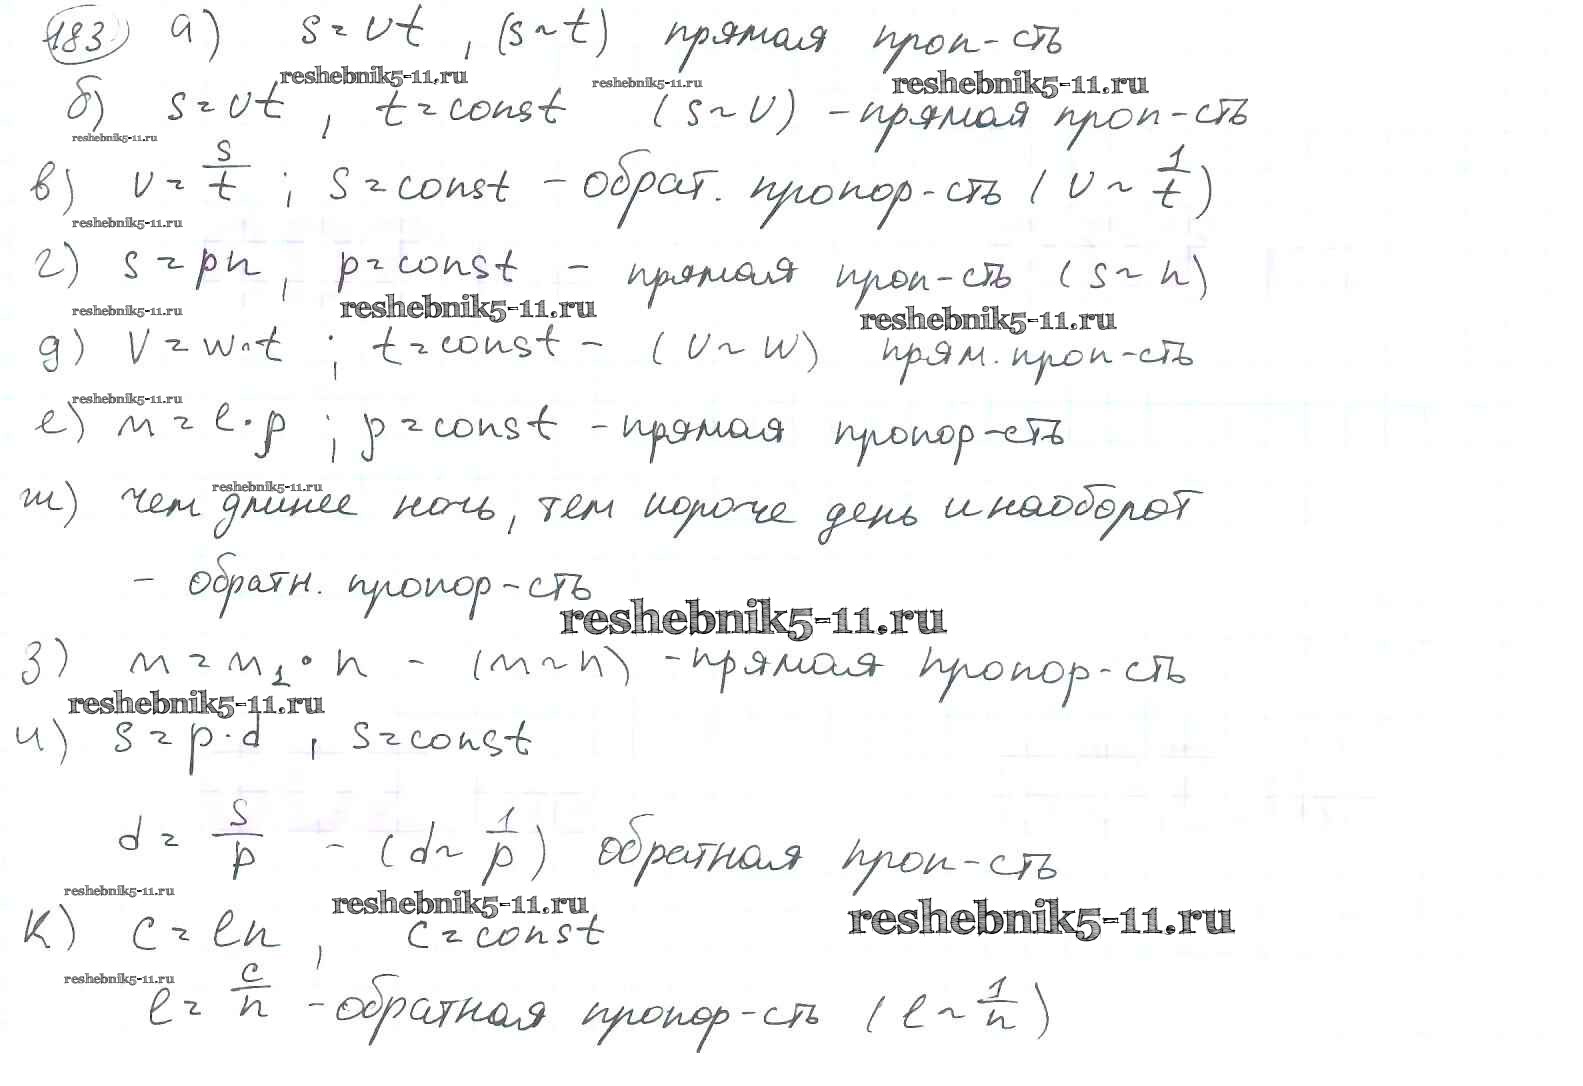 183) а) s = vt , (s ~ t) прямая проп-сть
reshebnik5-11.ru reshebnik5-11.ru reshebnik5-11.ru
б) s = vt , t = const (s ~ v) - прямая проп-сть
reshebnik5-11.ru
в) v = s/t ; s = const - обрат. пропор-сть ( v ~ 1/t )
reshebnik5-11.ru
г) s = pn , p = const - прямая проп-сть (s ~ n)
reshebnik5-11.ru reshebnik5-11.ru reshebnik5-11.ru
д) V = w·t ; t = const - (v ~ w) прям. проп-сть
reshebnik5-11.ru
е) m = l·p ; p = const - прямая пропор-сть
reshebnik5-11.ru
ж) чем длинее ночь, тем короче день и наоборот
- обратн. пропор-сть
reshebnik5-11.ru
з) m = m₁ · n - (m ~ n) - прямая пропор-сть
reshebnik5-11.ru
и) s = p·d , s = const
d = s/p - (d ~ 1/p) обратная проп-сть
reshebnik5-11.ru reshebnik5-11.ru reshebnik5-11.ru
к) c = ln , c = const
reshebnik5-11.ru
l = c/n - обратная пропор-сть (l ~ 1/n)